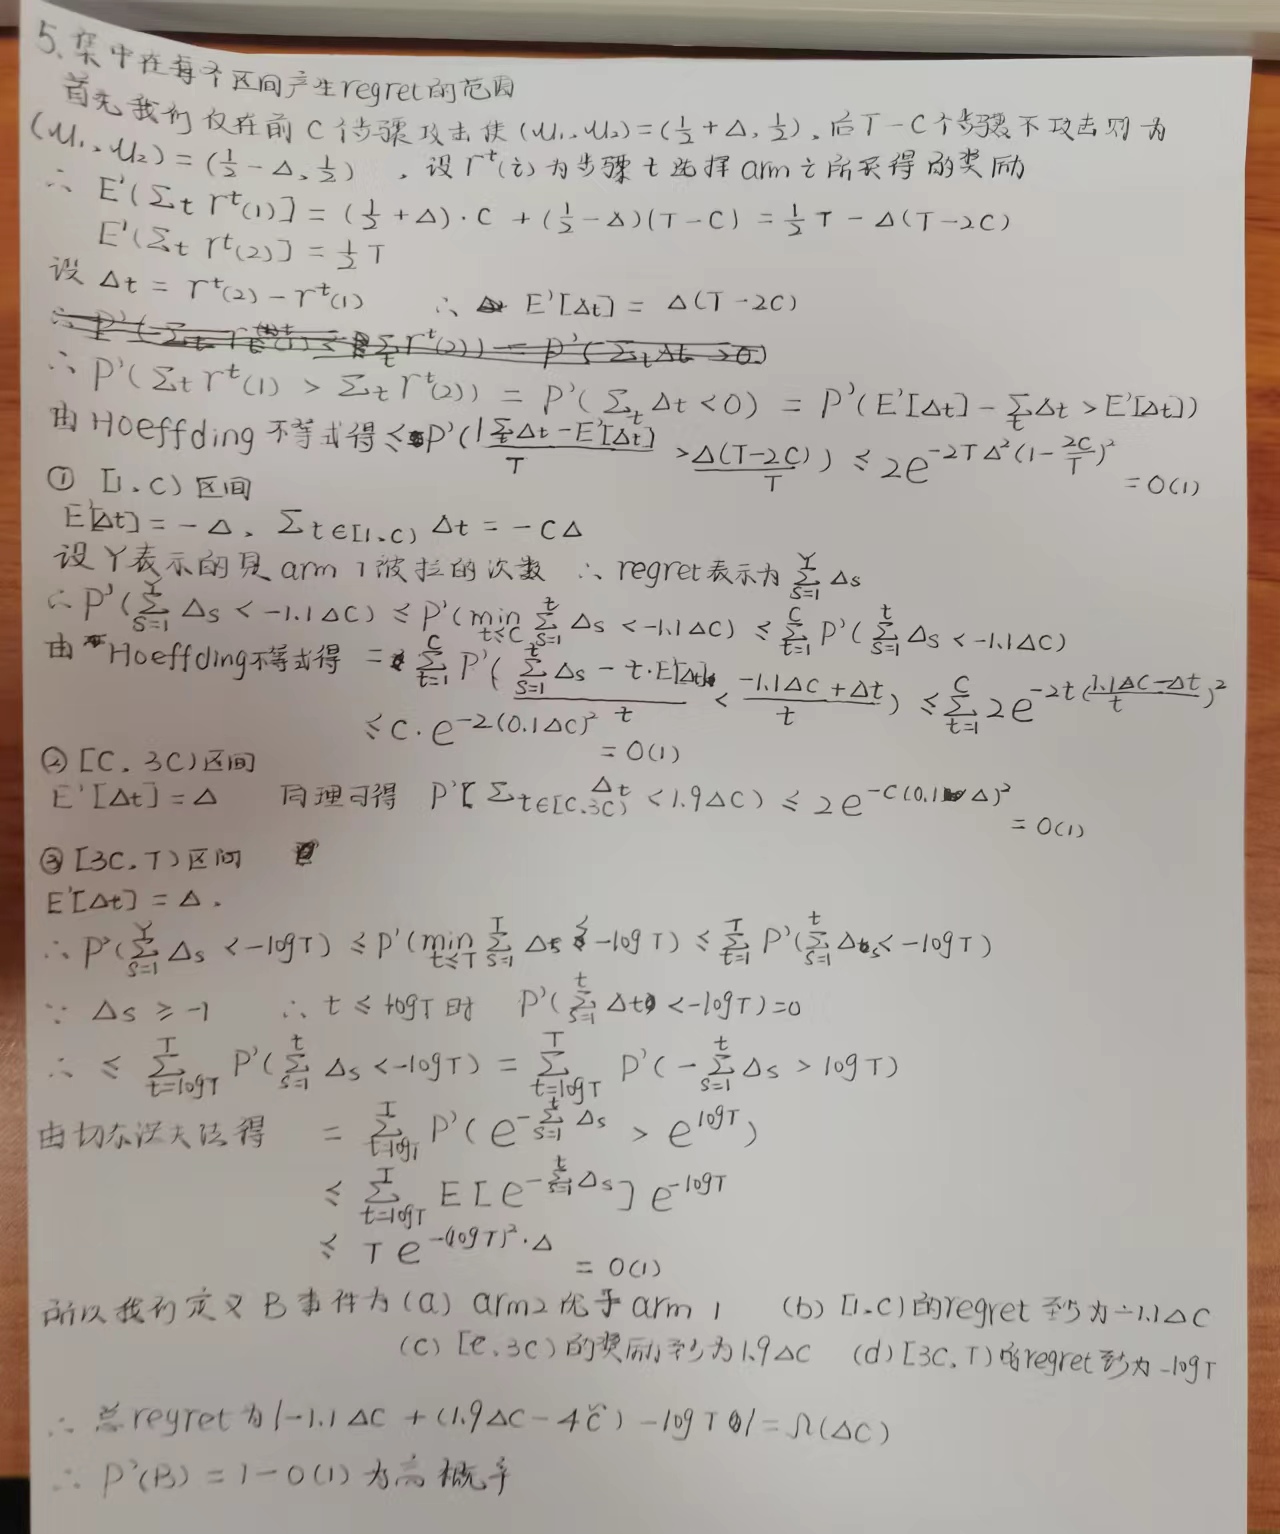 5. 集中在每个区间产生regret的范围
首先我们仅在前C个步骤攻击使(μ₁,μ₂)=(½+Δ,½),后T-C个步骤不攻击则为
(μ₁,μ₂)=(½-Δ,½),设rᵗ(i)为步骤t选择arm i所获得的奖励
∴ E'(Σt rᵗ(1)] = (½+Δ)·C + (½-Δ)(T-C) = ½T - Δ(T-2C)
E'(Σt rᵗ(2)] = ½T
设 Δt = rᵗ(2) - rᵗ(1) ∴ E'[Δt] = Δ(T-2C)
∴ P'(Σt rᵗ(1) > Σt rᵗ(2)) = P'(Σt Δt < 0) = P'(E'[Δt] - Σt Δt > E'[Δt])
由Hoeffding不等式得 ≤ P'(|Σt Δt - E'[Δt]|/T > Δ(T-2C)/T) ≤ 2e^{-2TΔ²(1-2C/T)²} = O(1)
① [1,C)区间
E[Δt] = -Δ, Σt∈[1,C) Δt = -CΔ
设Y表示的是arm 1被拉的次数 ∴ regret表示为 Σ_{s=1}^{Y} Δs
∴ P'(Σ_{s=1}^{Y} Δs < -1.1ΔC) ≤ P'(min_{t≤C} Σ_{s=1}^{t} Δs < -1.1ΔC) ≤ Σ_{t=1}^{C} P'(Σ_{s=1}^{t} Δs < -1.1ΔC)
由Hoeffding不等式得 = Σ_{t=1}^{C} P'((Σ_{s=1}^{t} Δs - t·E'[Δt])/t < (-1.1ΔC+Δt)/t) ≤ Σ_{t=1}^{C} 2e^{-2t((1.1ΔC-Δt)/t)²}
≤ C·e^{-2(0.1ΔC)²} = O(1)
② [C,3C)区间
E'[Δt] = Δ 同理可得 P'[Σt∈[C,3C) Δt < 1.9ΔC) ≤ 2e^{-C(0.1Δ)²} = O(1)
③ [3C,T)区间
E'[Δt] = Δ.
∴ P'(Σ_{s=1}^{Y} Δs < -logT) ≤ P'(min_{t≤T} Σ_{s=1}^{T} Δs < -logT) ≤ Σ_{t=1}^{T} P'(Σ_{s=1}^{t} Δs < -logT)
∵ Δs ≥ -1 ∴ t ≤ logT时 P'(Σ_{s=1}^{t} Δt < -logT) = 0
∴ ≤ Σ_{t=logT}^{T} P'(Σ_{s=1}^{t} Δs < -logT) = Σ_{t=logT}^{T} P'(-Σ_{s=1}^{t} Δs > logT)
由切尔诺夫法得 = Σ_{t=logT}^{T} P'(e^{-Σ_{s=1}^{t} Δs} > e^{logT})
≤ Σ_{t=logT}^{T} E[e^{-Σ_{s=1}^{t} Δs}] e^{-logT}
≤ T e^{-(logT)²·Δ} = O(1)
所以我们定义B事件为(a) arm2优于arm 1 (b) [1,C)的regret至少为-1.1ΔC
(c) [C,3C)的奖励至少为1.9ΔC (d) [3C,T)的regret至少为-logT
∴ 总regret为|-1.1ΔC + (1.9ΔC - 4C) - logT| = Ω(ΔC)
∴ P'(B) = 1-O(1)为高概率